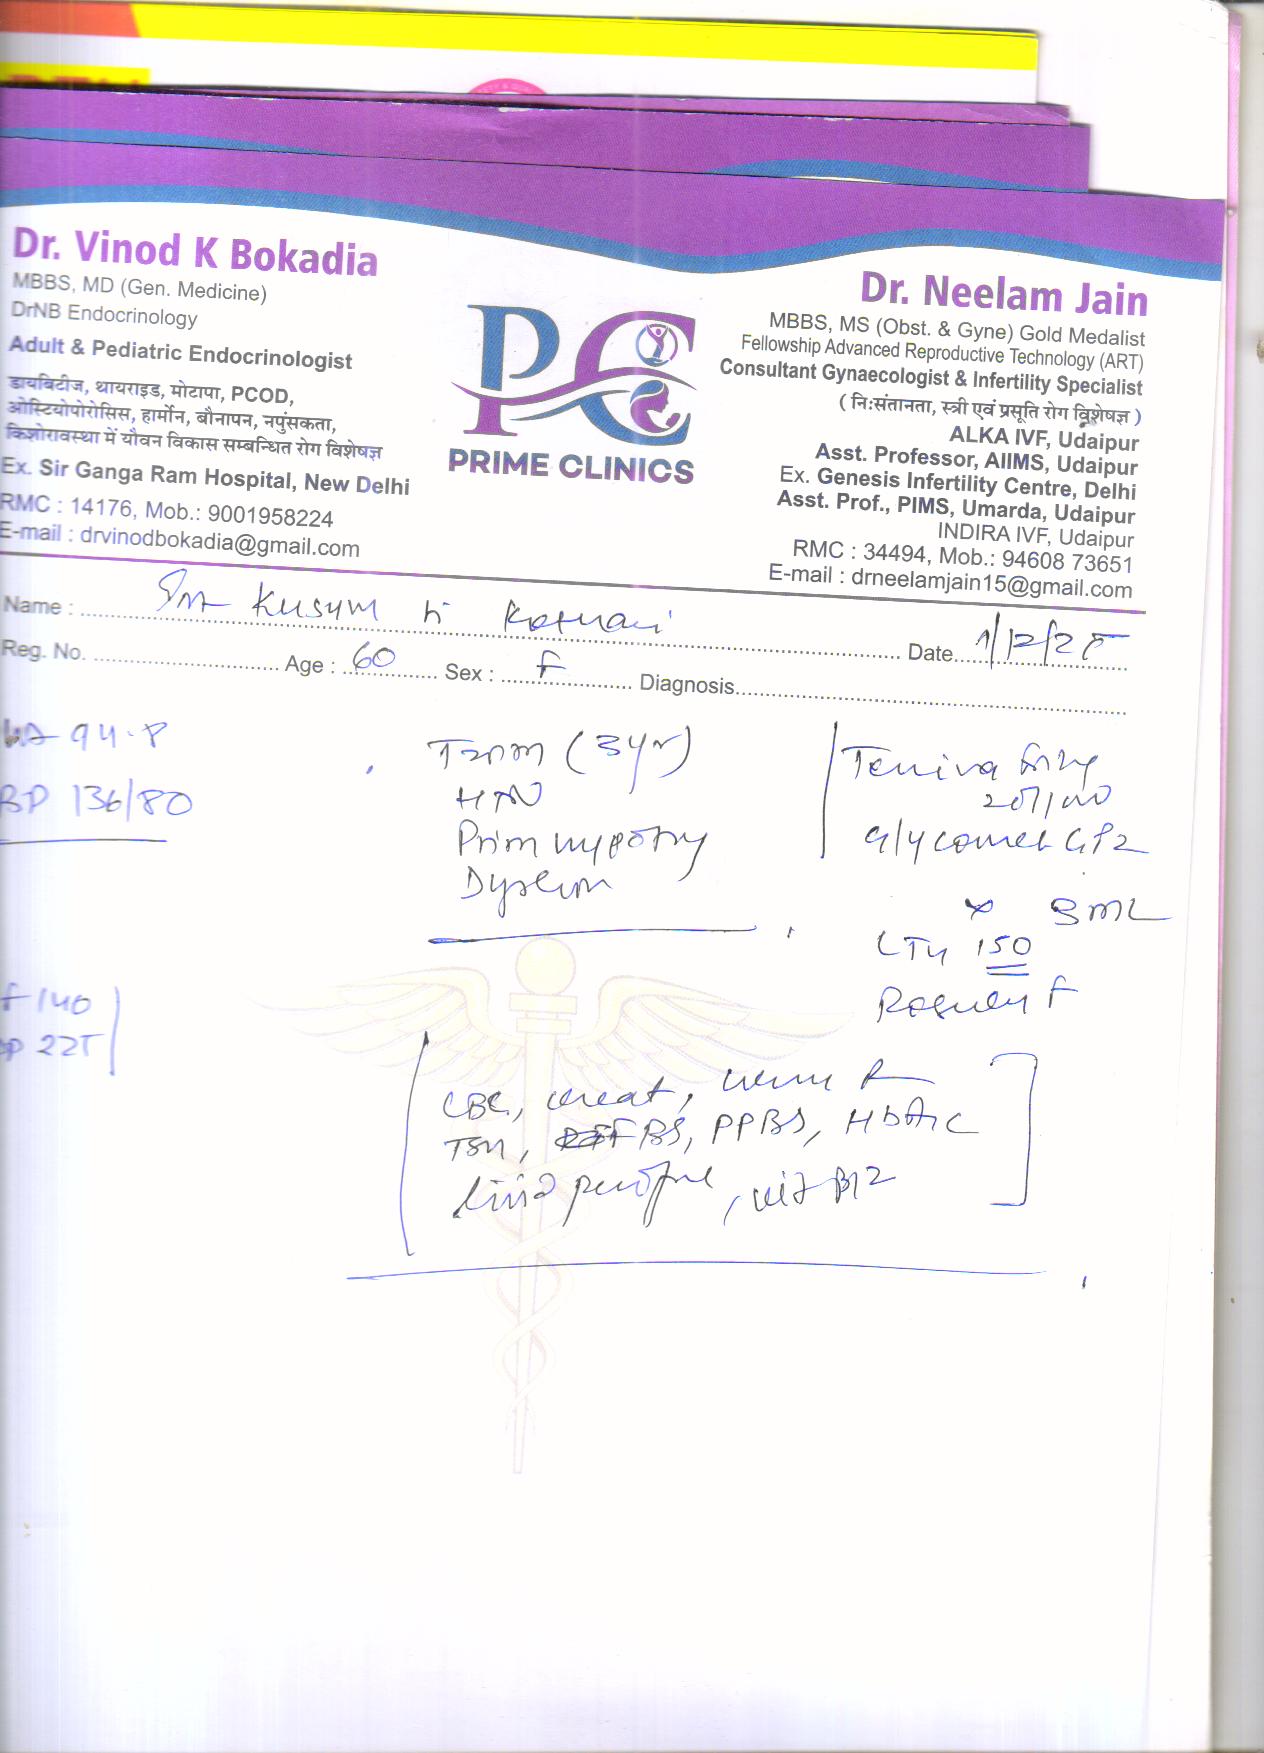 Dr. Vinod K Bokadia
MBBS, MD (Gen. Medicine)
DrNB Endocrinology
Adult & Pediatric Endocrinologist
डायबिटीज, थायराइड, मोटापा, PCOD,
ओस्टियोपोरोसिस, हार्मोन, बौनापन, नपुंसकता,
किशोरावस्था में यौवन विकास सम्बन्धित रोग विशेषज्ञ
Ex. Sir Ganga Ram Hospital, New Delhi
RMC : 14176, Mob.: 9001958224
E-mail : drvinodbokadia@gmail.com
PC
PRIME CLINICS
Dr. Neelam Jain
MBBS, MS (Obst. & Gyne) Gold Medalist
Fellowship Advanced Reproductive Technology (ART)
Consultant Gynaecologist & Infertility Specialist
( नि:संतानता, स्त्री एवं प्रसूति रोग विशेषज्ञ )
ALKA IVF, Udaipur
Asst. Professor, AIIMS, Udaipur
Ex. Genesis Infertility Centre, Delhi
Asst. Prof., PIMS, Umarda, Udaipur
INDIRA IVF, Udaipur
RMC : 34494, Mob.: 94608 73651
E-mail : drneelamjain15@gmail.com
Name : Kusum Date
Reg. No. Age : 60 Sex : F Diagnosis
94.8
BP 136/80
T2DM (3yr)
HTN
Prim hypothy
Dyslim
Teniva
20/1000
Glycomet GP2
LTH 150
F
F 140
PP 225
CBC, creat, urine R
TSH, FBS, PPBS, HbA1C
Lipid profile, vit B12